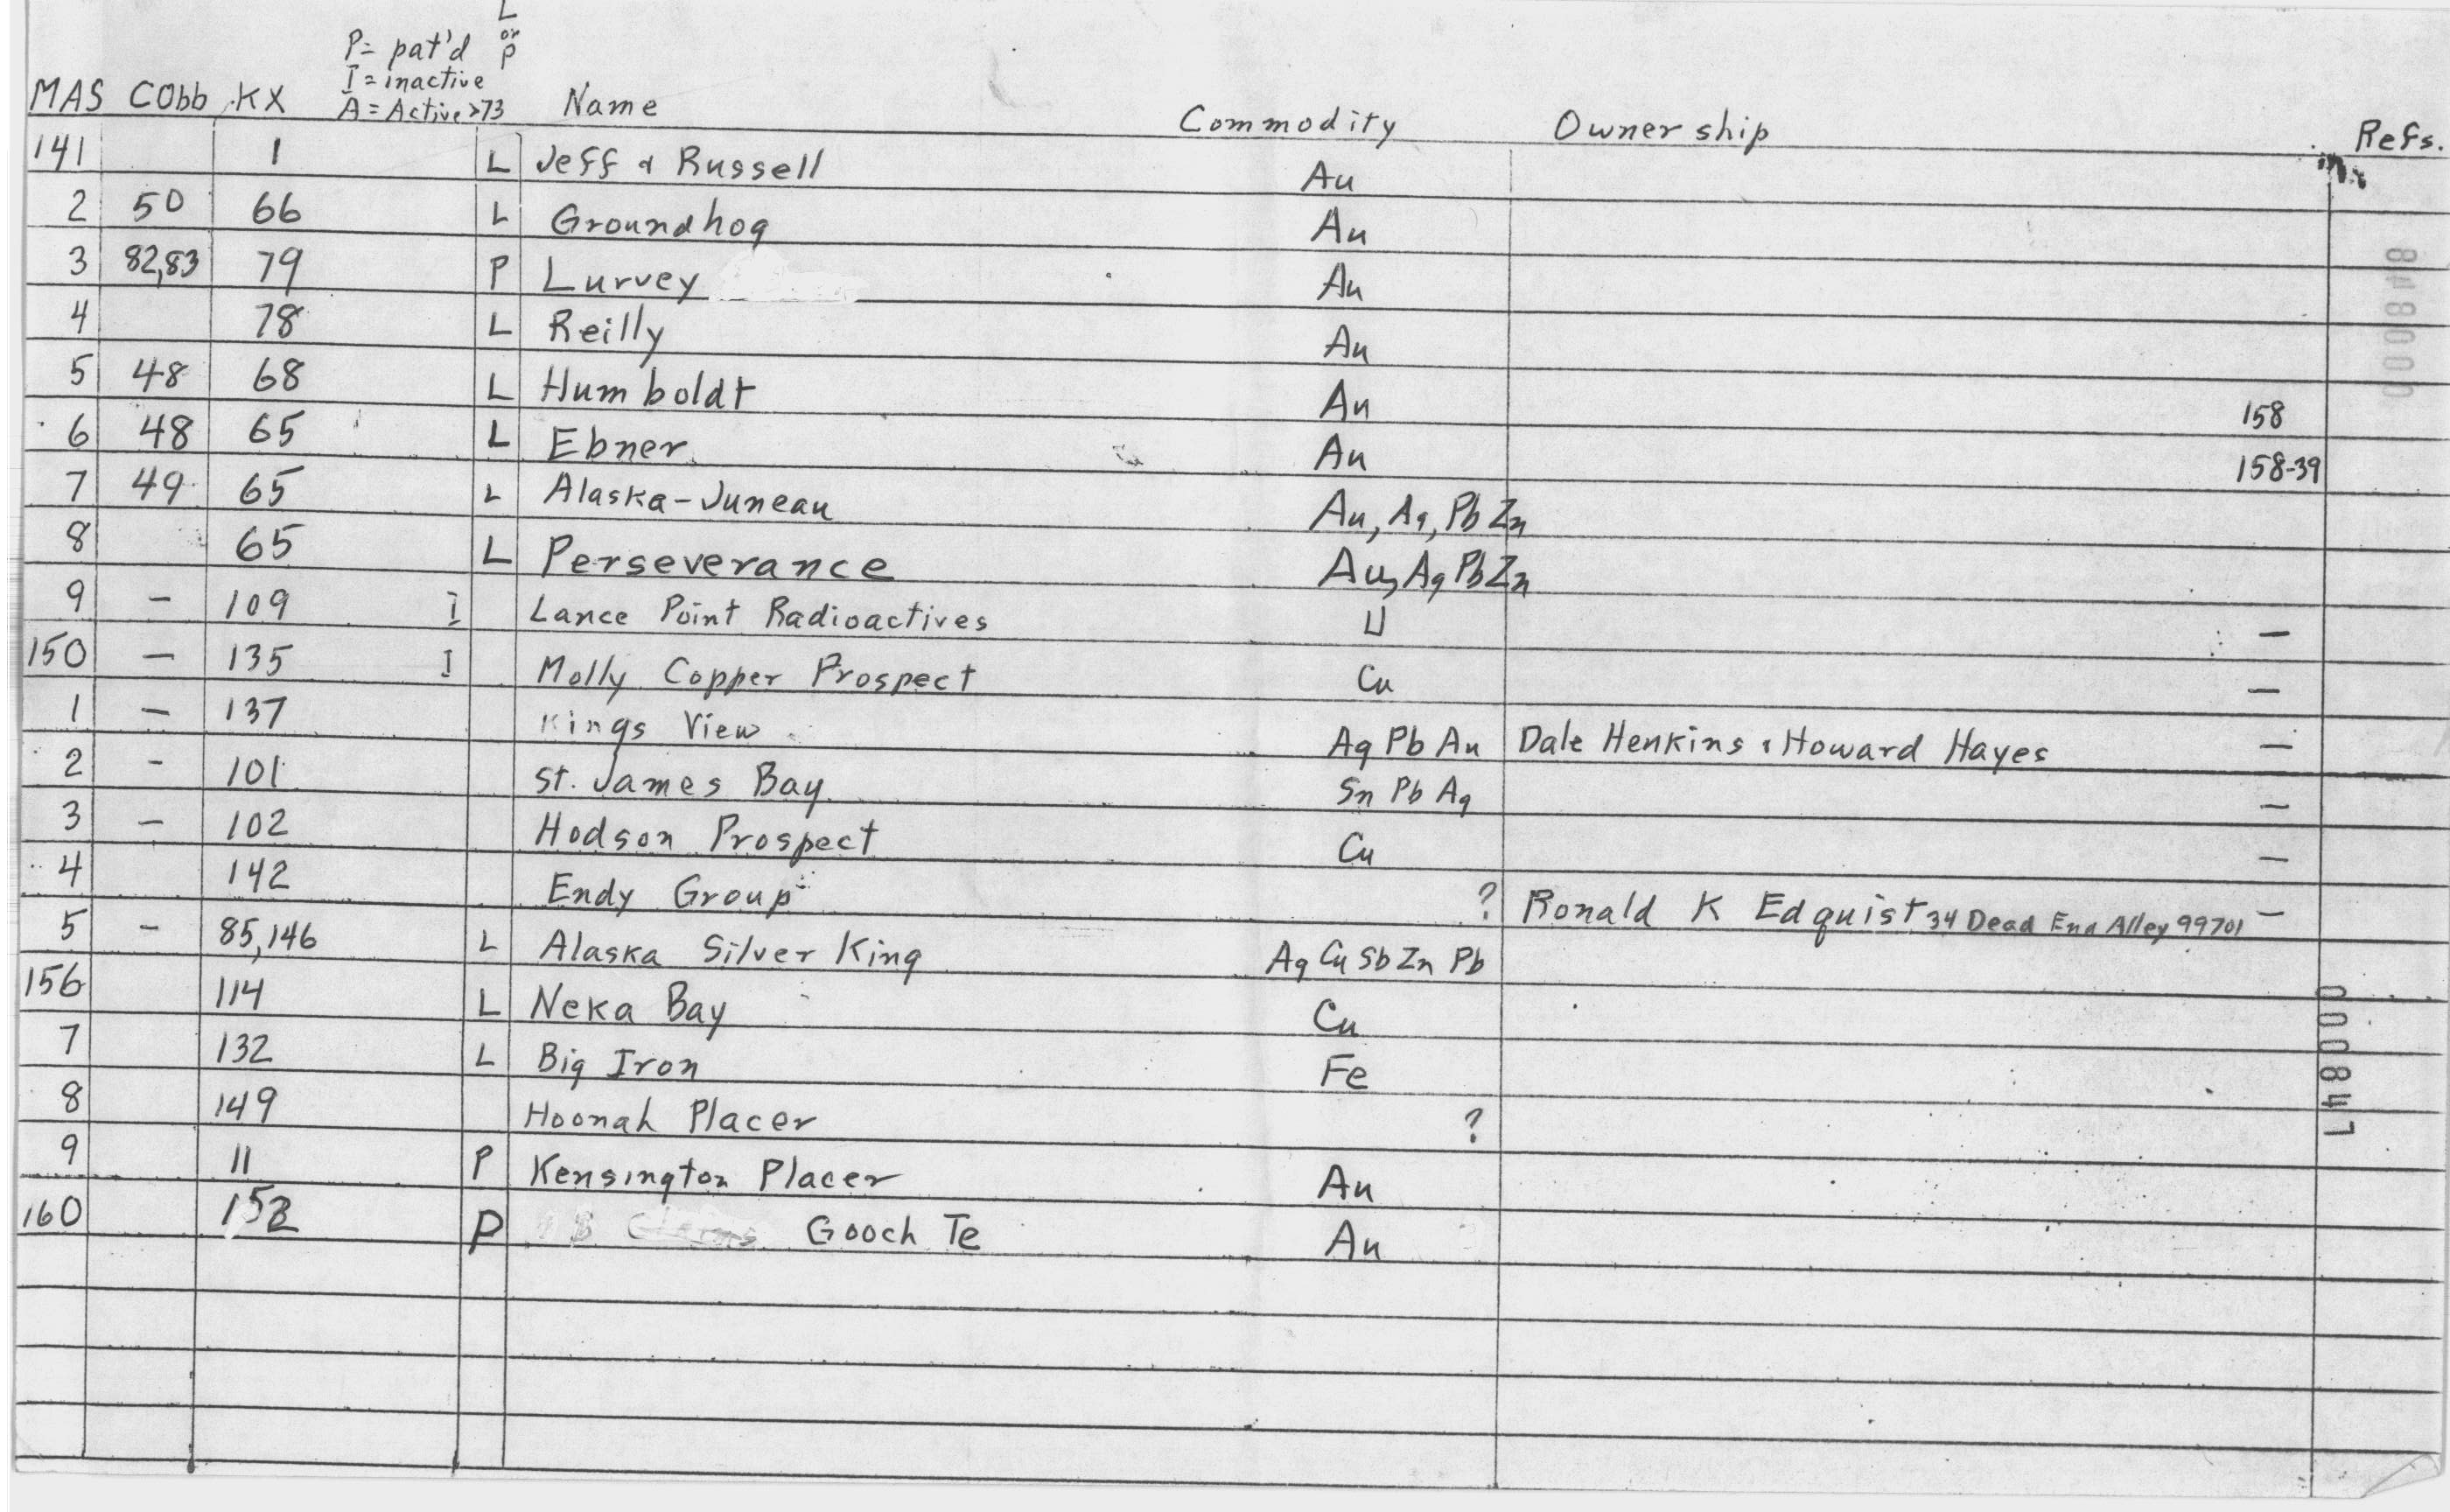 L
or
P
P= pat'd
I = inactive
A = Active >73
MAS Cobb KX Name Commodity Ownership Refs.
141 1 L Jeff & Russell Au
2 50 66 L Groundhog Au
3 82,83 79 P Lurvey Au
4 78 L Reilly Au
5 48 68 L Humboldt Au 158
6 48 65 L Ebner Au 158-39
7 49 65 L Alaska-Juneau Au, Ag, Pb Zn
8 65 L Perseverance Au, Ag Pb Zn
9 — 109 I Lance Point Radioactives U —
150 — 135 I Molly Copper Prospect Cu —
1 — 137 Kings View Ag Pb Au Dale Henkins & Howard Hayes —
2 - 101 St. James Bay Sn Pb Ag —
3 — 102 Hodson Prospect Cu —
4 142 Endy Group ? Ronald K Edquist 34 Dead End Alley 99701 —
5 - 85,146 L Alaska Silver King Ag Cu Sb Zn Pb
156 114 L Neka Bay Cu
7 132 L Big Iron Fe
8 149 Hoonah Placer ?
9 11 P Kensington Placer Au
160 P Gooch Te Au
000848
000847